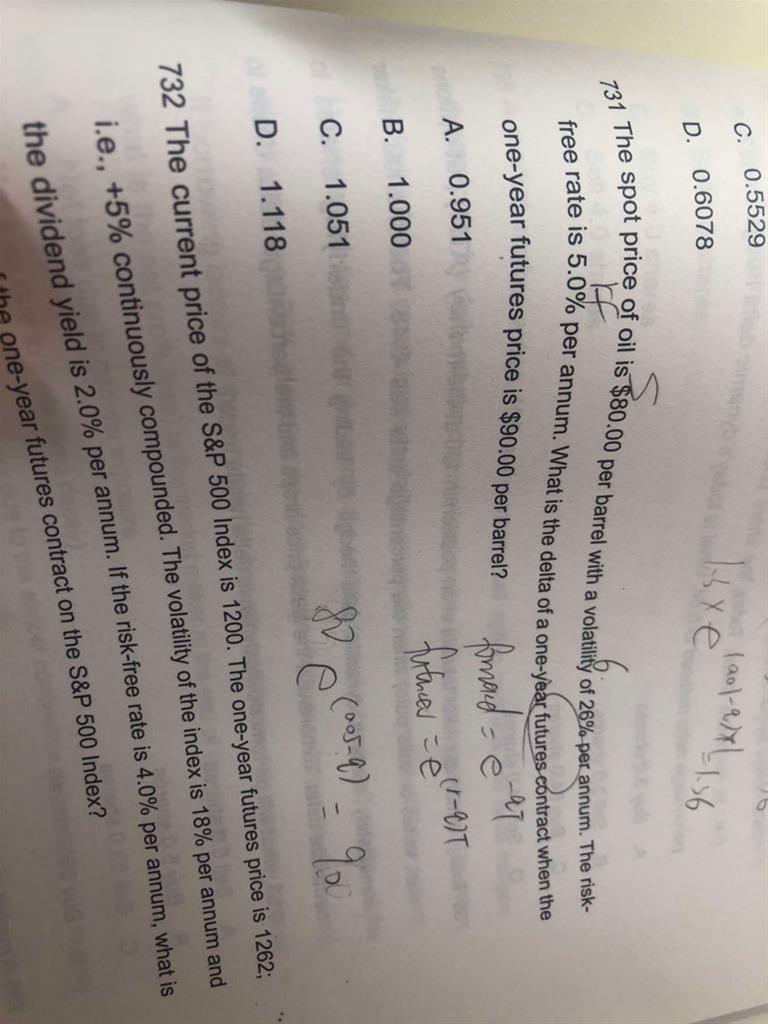 C. 0.5529
D. 0.6078
1.5 x e
= 1.56
731 The spot price of oil is $80.00 per barrel with a volatility of 26% per annum. The risk-
free rate is 5.0% per annum. What is the delta of a one-year futures contract when the
one-year futures price is $90.00 per barrel?
rf
S
forward = e^-qT
A. 0.951
futures = e^(r-q)T
B. 1.000
C. 1.051
80 e^(0.05-q) = 900
D. 1.118
732 The current price of the S&P 500 Index is 1200. The one-year futures price is 1262;
i.e., +5% continuously compounded. The volatility of the index is 18% per annum and
the dividend yield is 2.0% per annum. If the risk-free rate is 4.0% per annum, what is
the one-year futures contract on the S&P 500 Index?